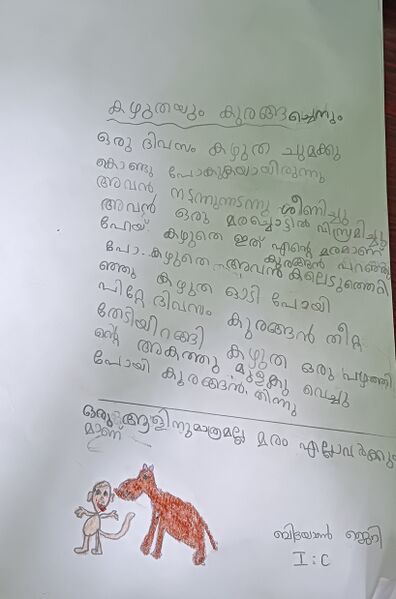 കഴുതയും കുരങ്ങച്ചെനും
ഒരു ദിവസം കഴുത ചുമക്കു
കൊണ്ടു പോകുകയായിരുന്നു
അവൻ നടന്നുന്നടന്നു ശീണിച്ചു
അവൻ ഒരു മരച്ചൊട്ടിൽ വിസ്രമിച്ചു
പേയ് കഴുതെ ഇത് എന്റെ മരമാണ്
പോ..കഴുതെ കുരങ്ങൻ പറഞ്ഞു
അവൻ കല്ലെടുത്തെറി
ഞ്ഞു കഴുത ഓടി പോയി
പിറ്റേ ദിവസം കുരങ്ങൻ തീറ്റ
തേടിയിറങ്ങി കഴുത ഒരു പഴത്തി
ന്റെ അകത്തു മുളകു വെച്ചു
പോയി കുരങ്ങൻ തിന്നു
ഒരു മാത്രമല്ല മരം എല്ലാവർക്കും
മാണ്
ജെറി
I : C